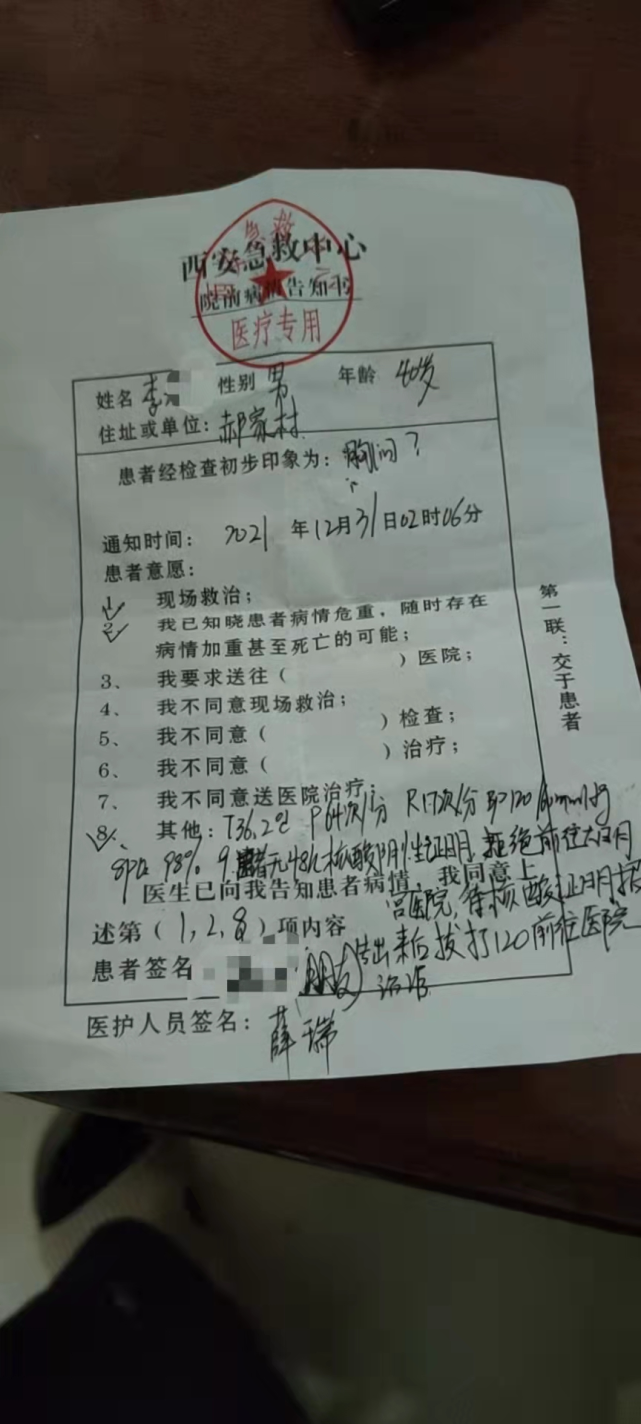 西安急救中心
院前病情告知书
急救
医疗专用
姓名 李 性别 男 年龄 40岁
住址或单位：郝家村
患者经检查初步印象为：胸闷？
通知时间： 2021 年12月31日02时06分
患者意愿：
1 现场救治；
2 我已知晓患者病情危重，随时存在
病情加重甚至死亡的可能；
3、 我要求送往（ ）医院；
4、 我不同意现场救治；
5、 我不同意（ ）检查；
6、 我不同意（ ）治疗；
7、 我不同意送医院治疗；
8、 其他：T36.2℃ P64次/分 R17次/分 BP120/ mmHg
SpO₂ 98% 患者无48h核酸阴性证明，拒绝前往大明
宫医院，待核酸证明报
告出来后拨打120前往医院
治疗
医生已向我告知患者病情，我同意上
述第（1，2，8）项内容
患者签名 （朋友）
医护人员签名：薛瑞
第一联：交于患者